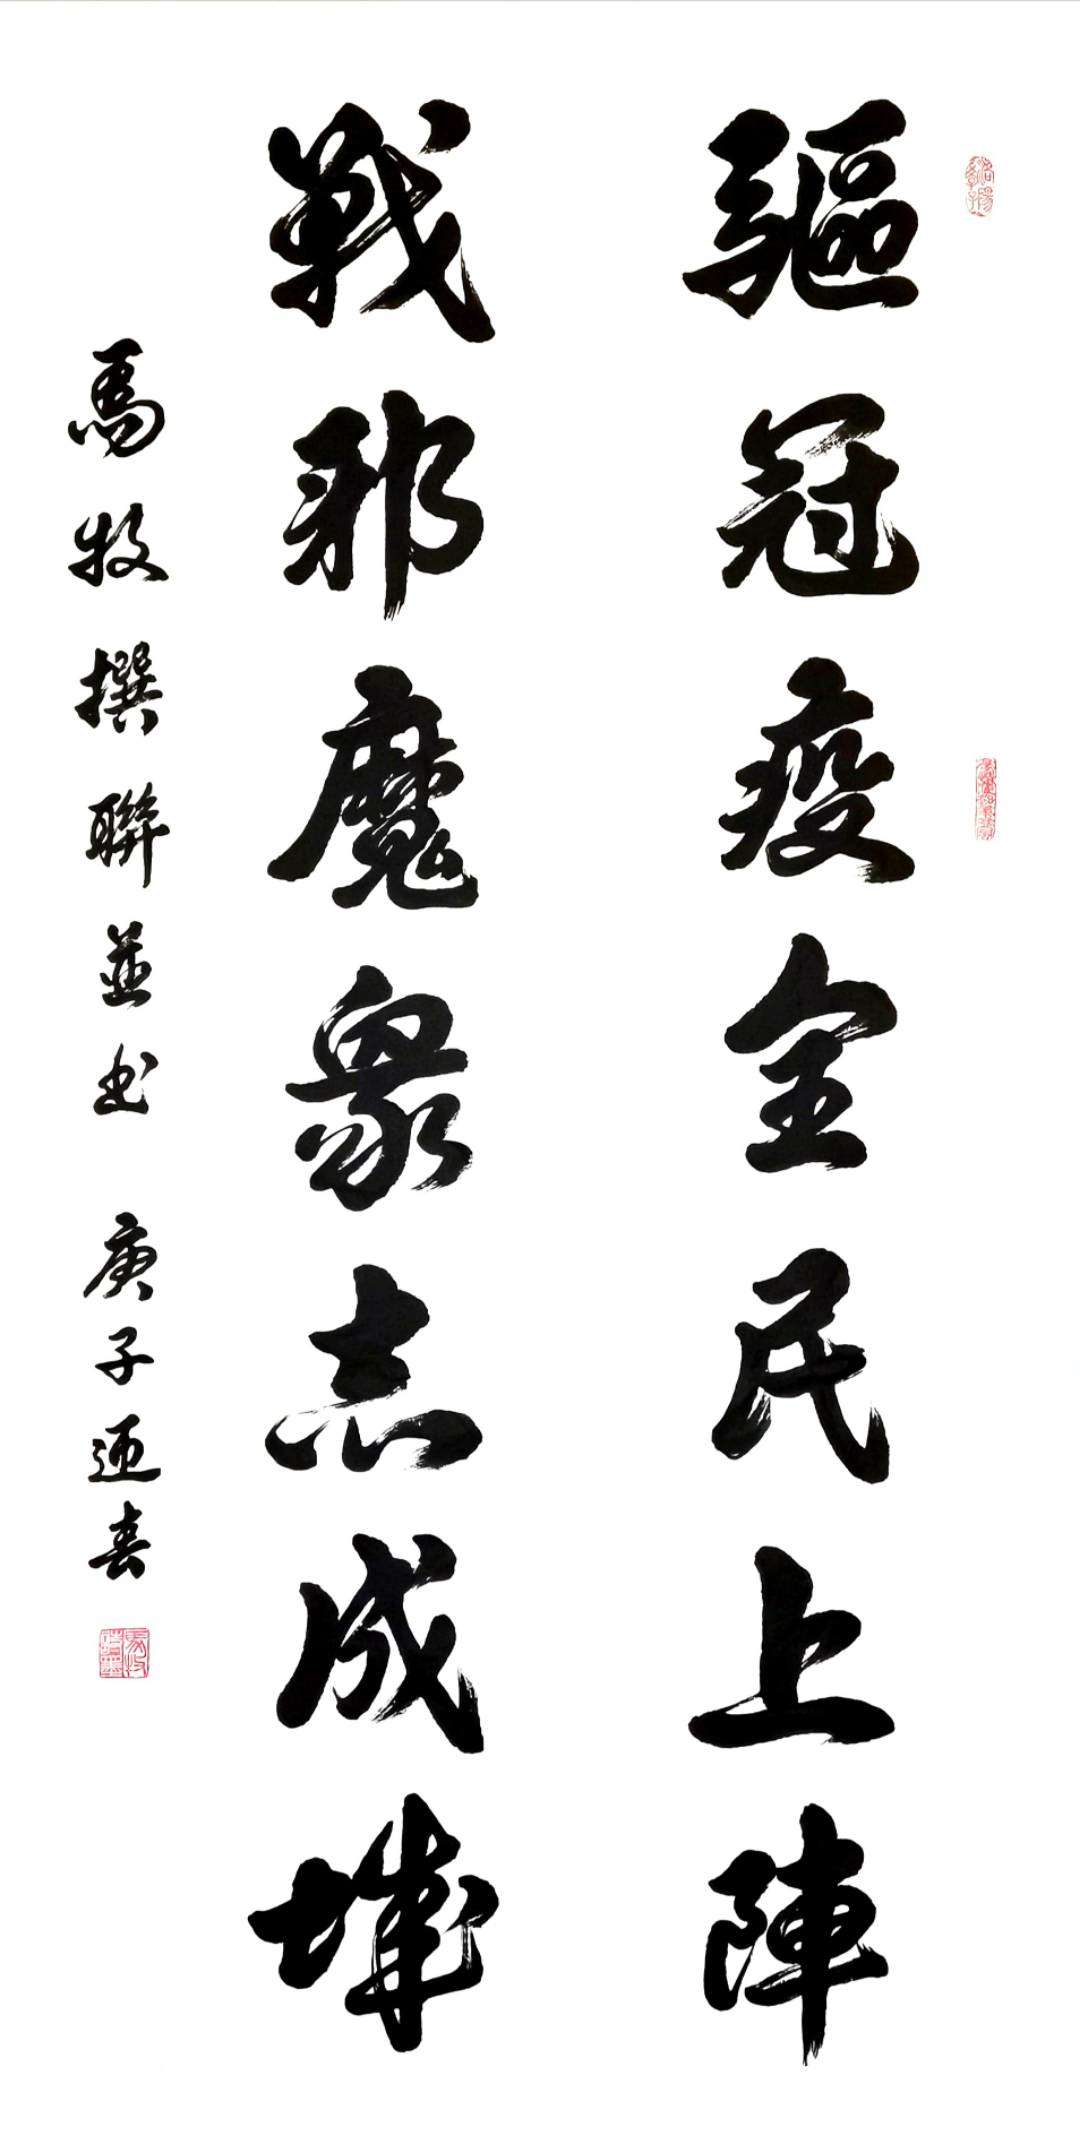 驅冠疫全民上陣
戰邪魔衆志成城
馬牧撰聯並書 庚子迎春
馬牧